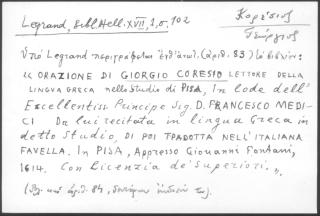 Legrand, Bibl. Hell. XVII, 3, σ. 102
Κορέσιος
Γεώργιος
Ὑπὸ Legrand περιγράφεται ἐνθ' ἀνωτ. (ἀριθ. 83) τὸ βιβλίον:
« ORAZIONE DI GIORGIO CORESIO LETTORE DELLA
LINGUA GRECA nello Studio di PISA, In lode dell'
Excellentiss Principe Sig. D. FRANCESCO MEDI-
CI Da lui recitata in lingua Greca in
detto Studio, DI POI TRADOTTA NELL'ITALIANA
FAVELLA. In PISA, Appresso Giovanni Fontani,
1614. Con Licenzia de' Superiori. »
(Βλ. καὶ ἀριθ. 84, του).